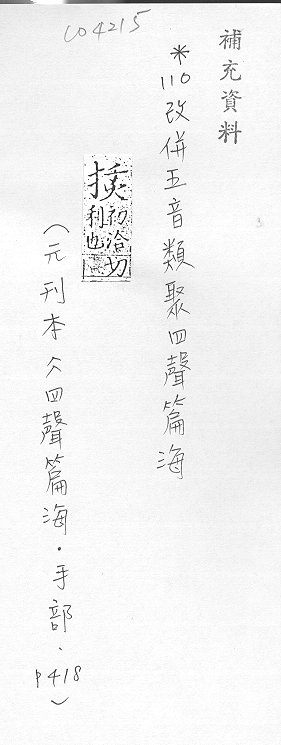 C04215
補充資料
*110改併五音類聚四聲篇海
初洽切
利也
(元刊本《四聲篇海·手部、p418)